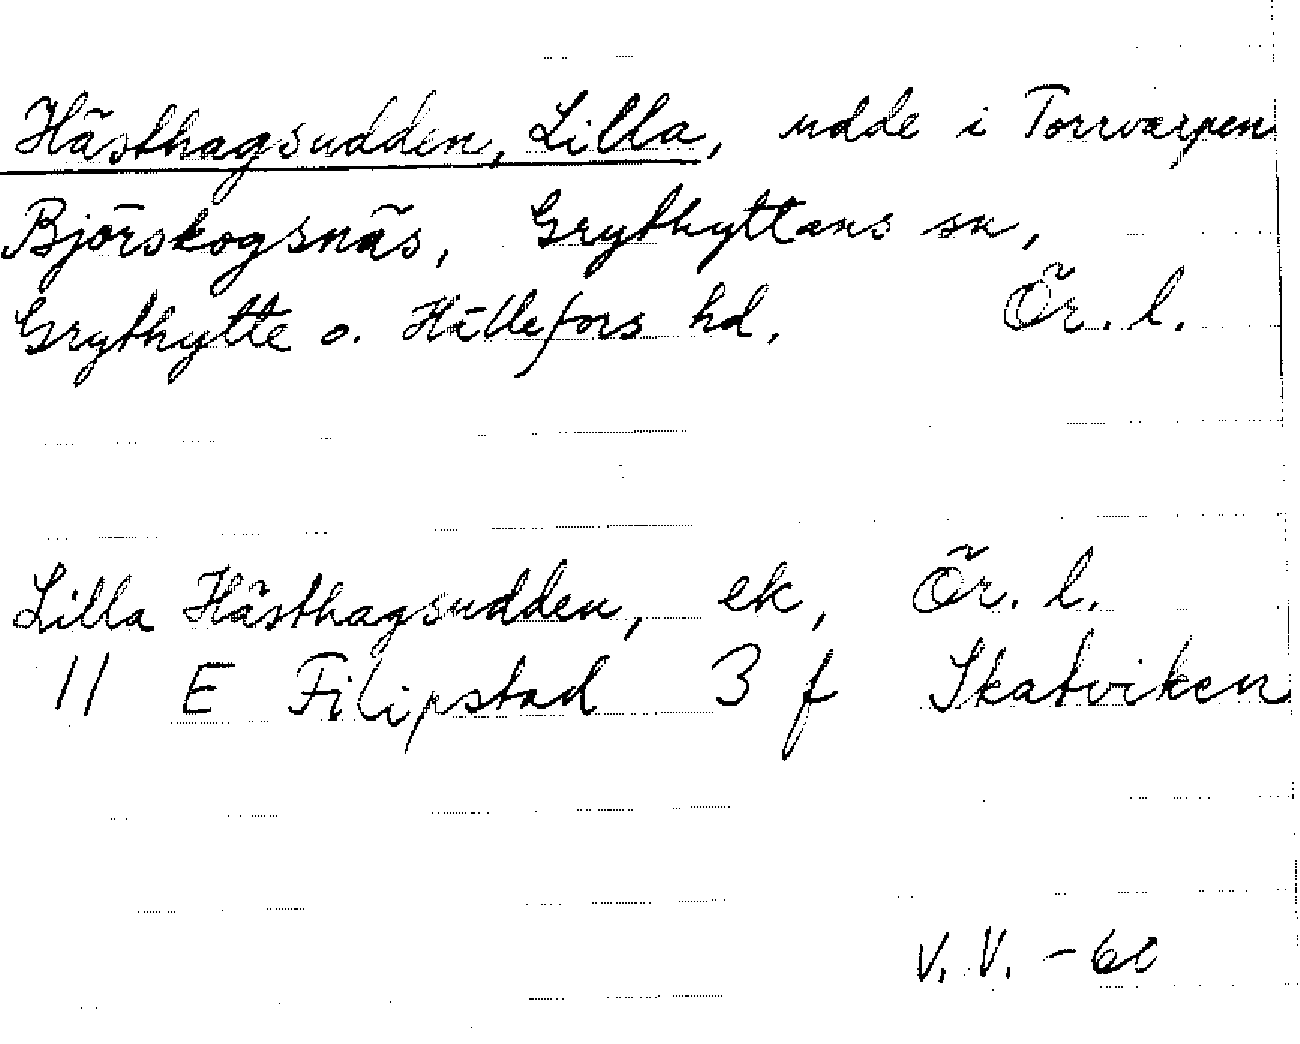 Hästhagsudden, Lilla, udde i Torrvarpen
Björskogsnäs, Grythyttans sn,
Grythytte o. Hällefors hd. Ör. l.
Lilla Hästhagsudden, ek, Ör. l.
11 E Filipstad 3 f Skatviken
V. V. - 60